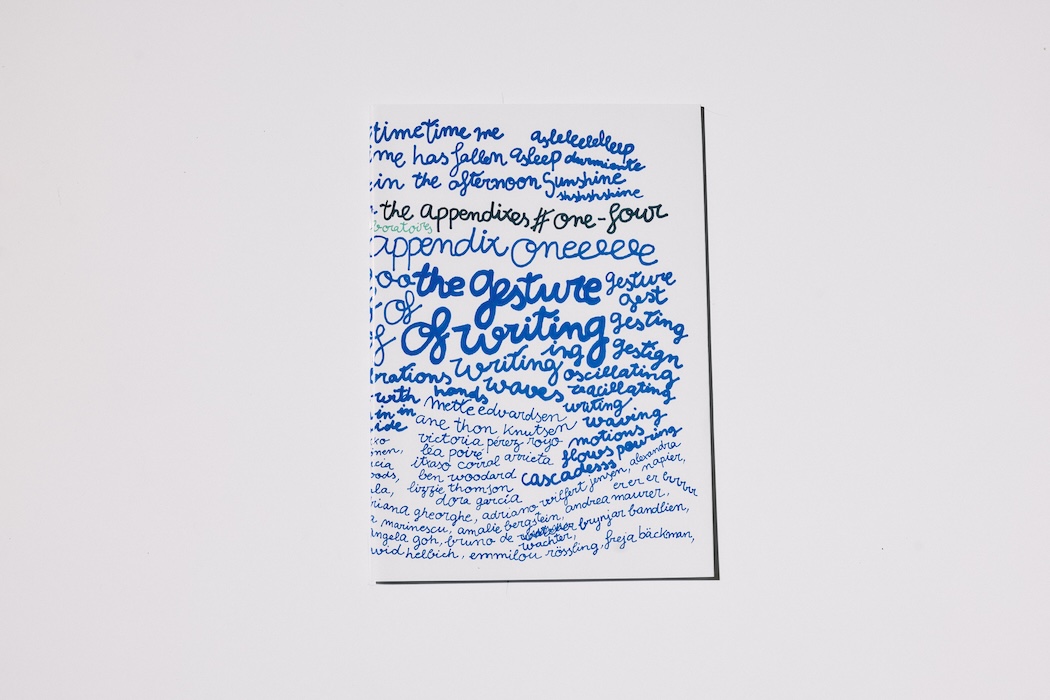 timetime me asleleelelleep
me has fallen asleep durmiente
in the afternoon sunshine
shshshshine
the appendixes # one-four
boratoires
appendix oneeeeee
oo the gesture gesture
gest
of of writing gesting
f writing ing gestign
brations waves oscillating
with hands vacillating
in in mette edvardsen writing
ide ane thon knutsen waving
kko victoria pérez royo motions
nen, léa poiré flows pouring
cia itxaso corral arrieta cascadesss
oods, ben woodard
la, lizzie thomson
dora garcía
riana gheorghe, adriano wilfert jensen, alexandra napier,
er er er brrrrr
a marinescu, amalie bergstein, andrea maurer,
angela goh, bruno de wachter, brynjar bandlien,
vid helbich, emmilou rössling, freja bäckman,